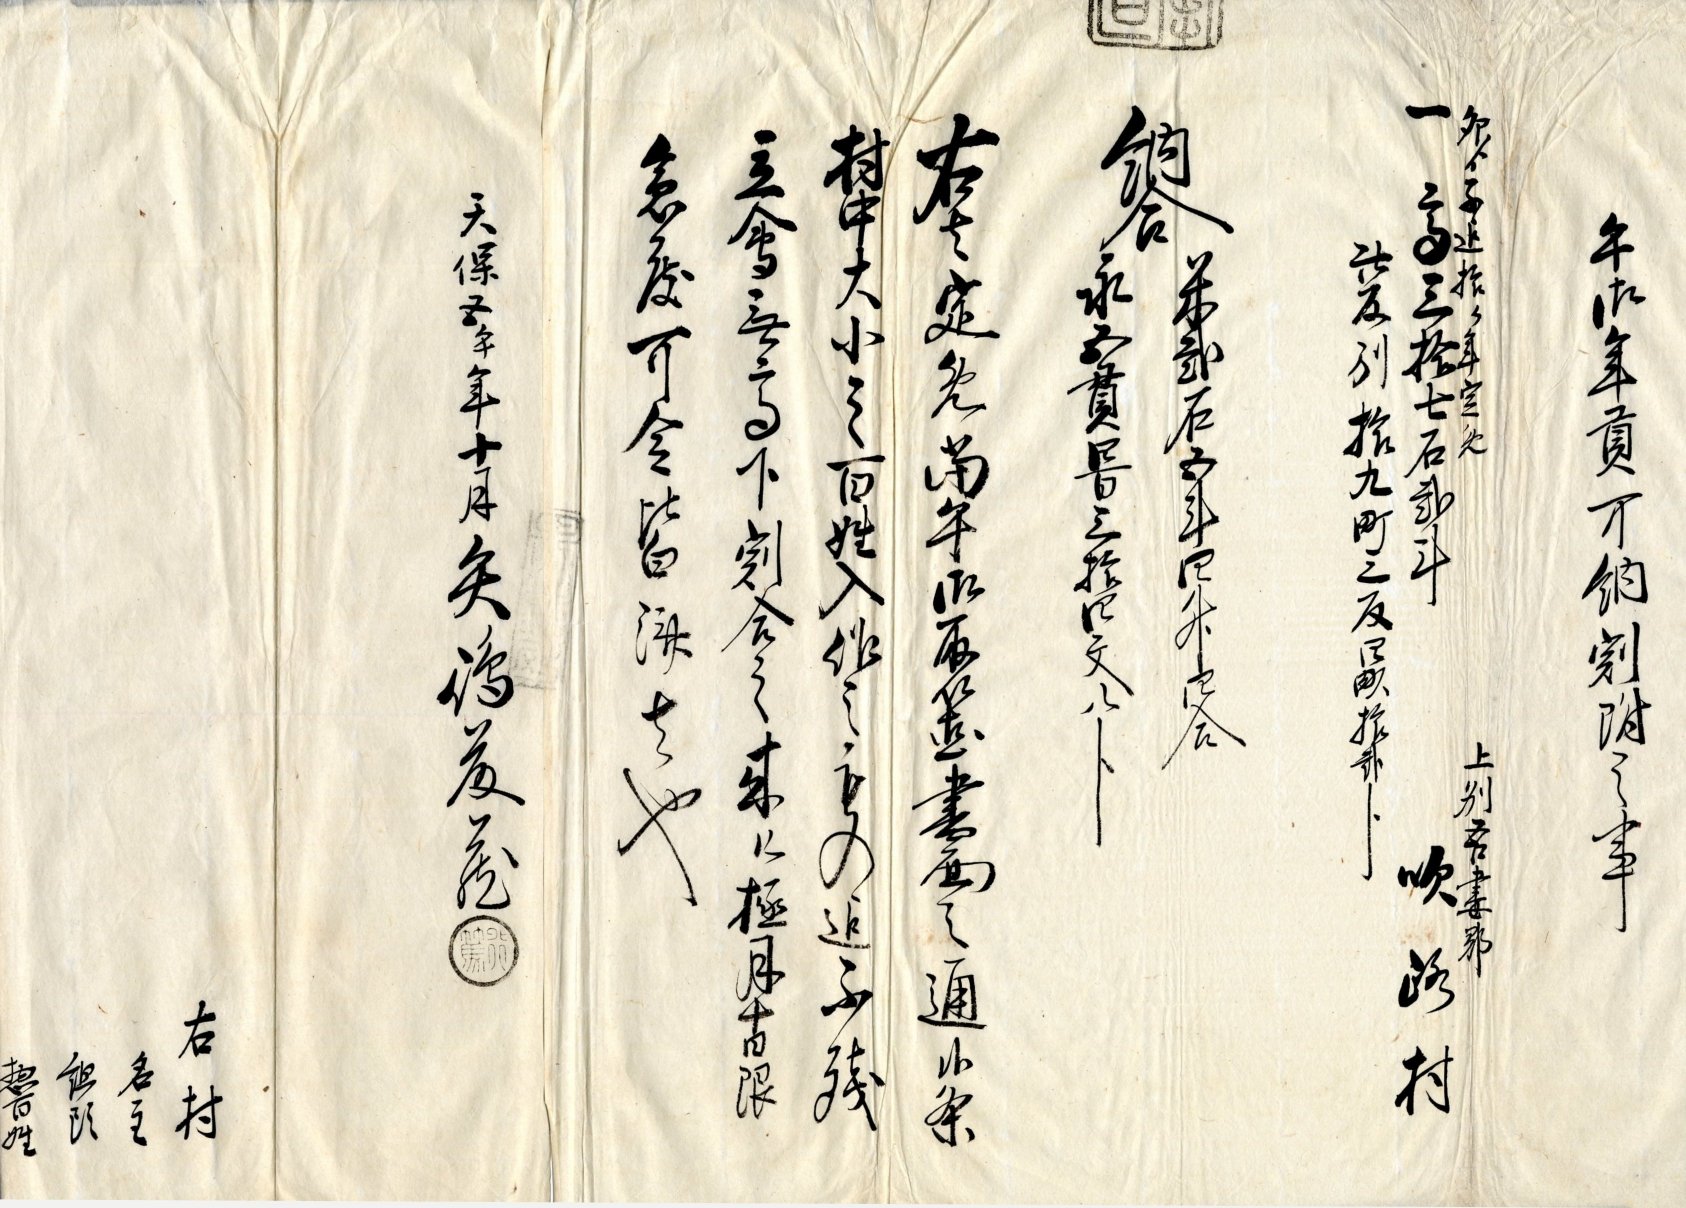 午御年貢可納割附之事
卯より子迄拾ヶ年定免
上州吾妻郡
一高三拾七石弐斗 吹路村
此反別拾九町三反四畝拾弐歩
米弐石五斗四升四合
納合
永五貫四百三拾四文八分
右者定免当午御取箇書面之通候条
村中大小之百姓入作之者迄不残
立会無高下割合之来ル極月十日限
急度可令皆済者也
天保五午年十月 矢嶋藤蔵
右村
名主
組頭
惣百姓